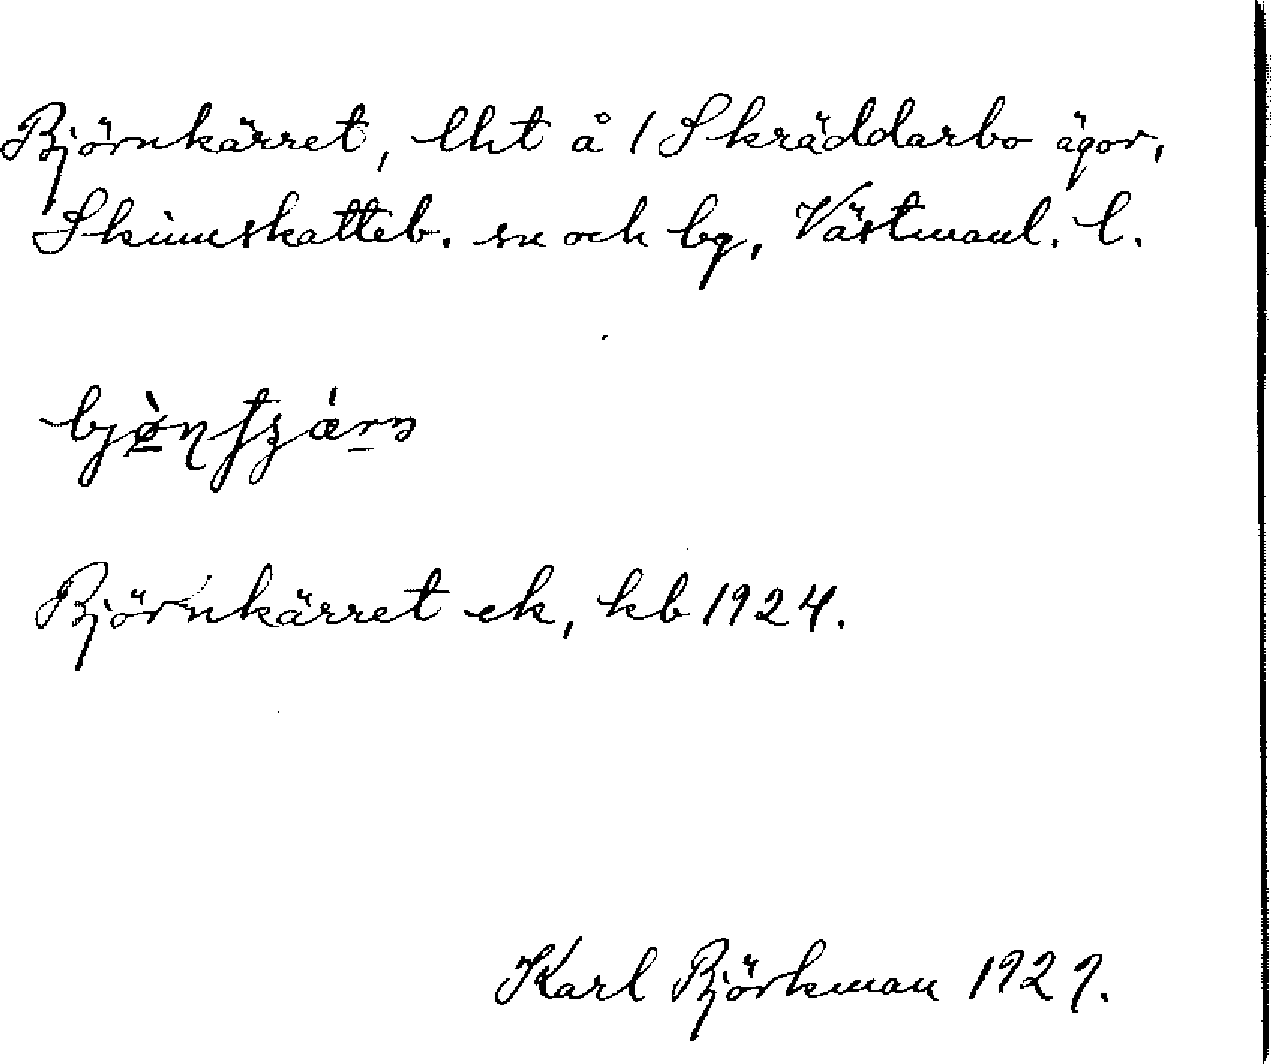 Björnkärret, lht å / Skräddarbo ägor,
Skinnskatteb. sn och bg, Västmanl. l.
Björnkärret ek, kb 1924.
Karl Björkman 1929.